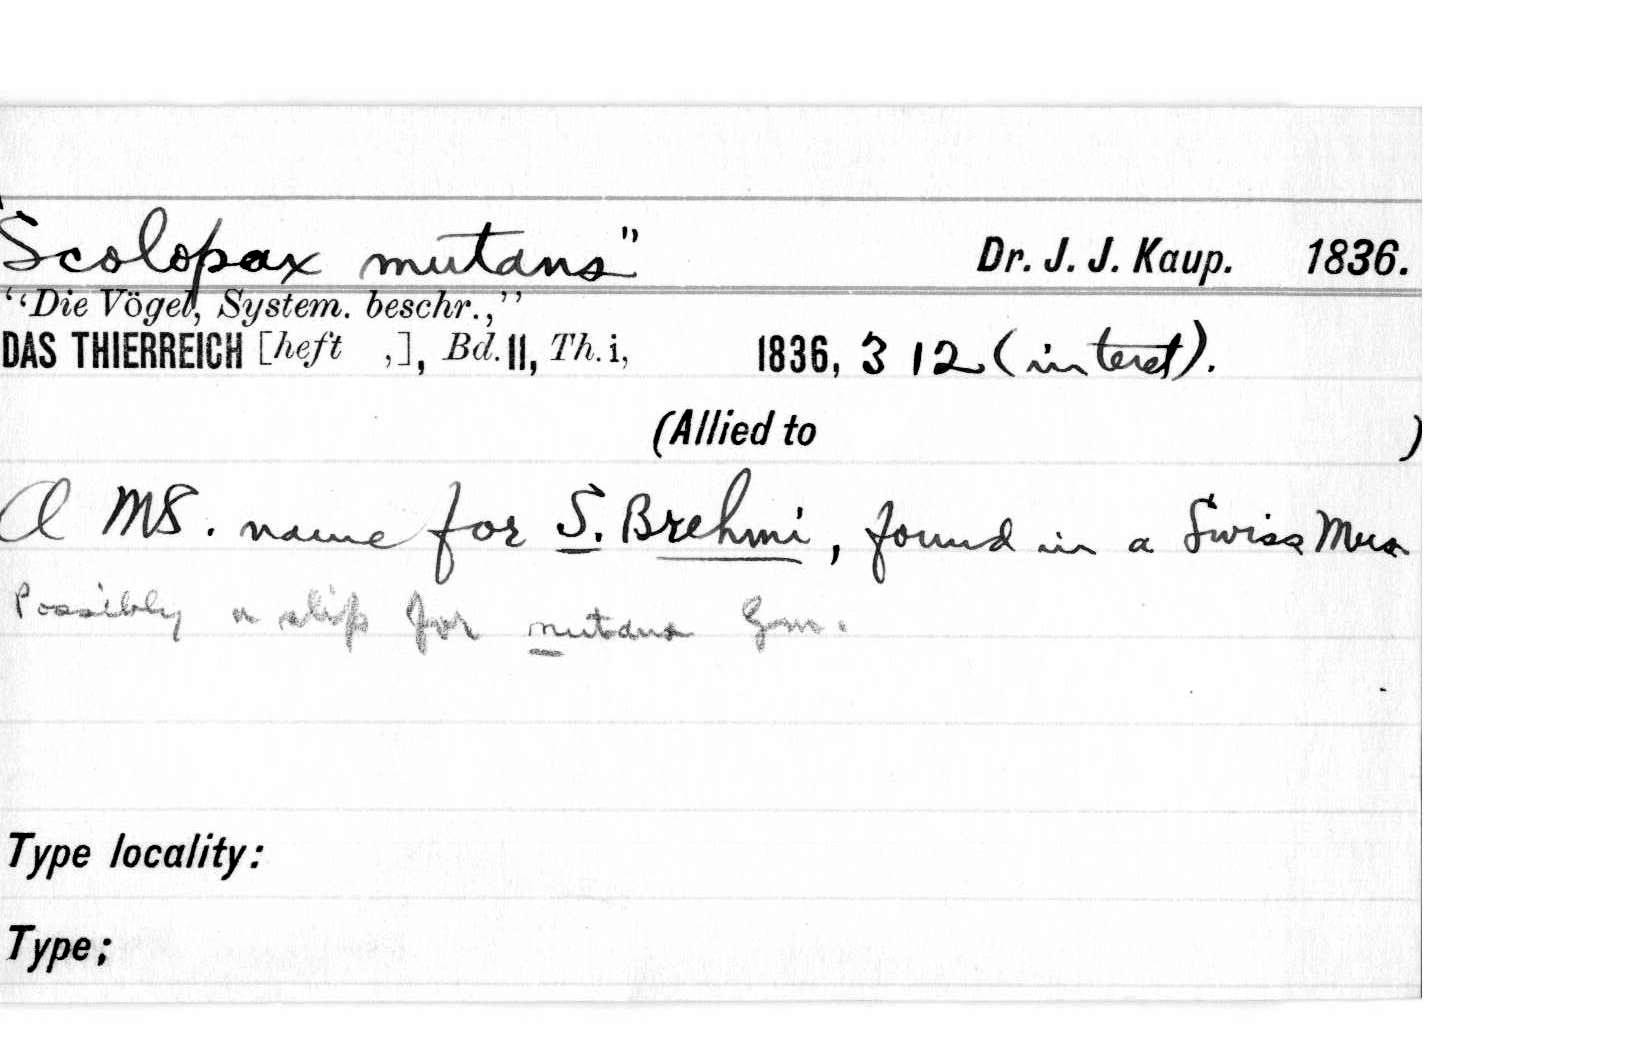 "Scolopax mutans" Dr. J. J. Kaup. 1836.
“Die Vögel, System. beschr.,”
DAS THIERREICH [heft ,], Bd. II, Th. i, 1836, 312 (in text).
(Allied to )
A MS. name for S. Brehmi, found in a Swiss Mus
Possibly a slip for nutans Gm.
Type locality:
Type;